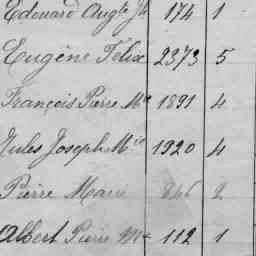 Edouard Augte Jh 174 1
Eugène Félix 2373 5
François Pierre Mie 1891 4
Jules Joseph Mie 1920 4
Pierre Marie 846 2
Albert Pierre Mie 112 1